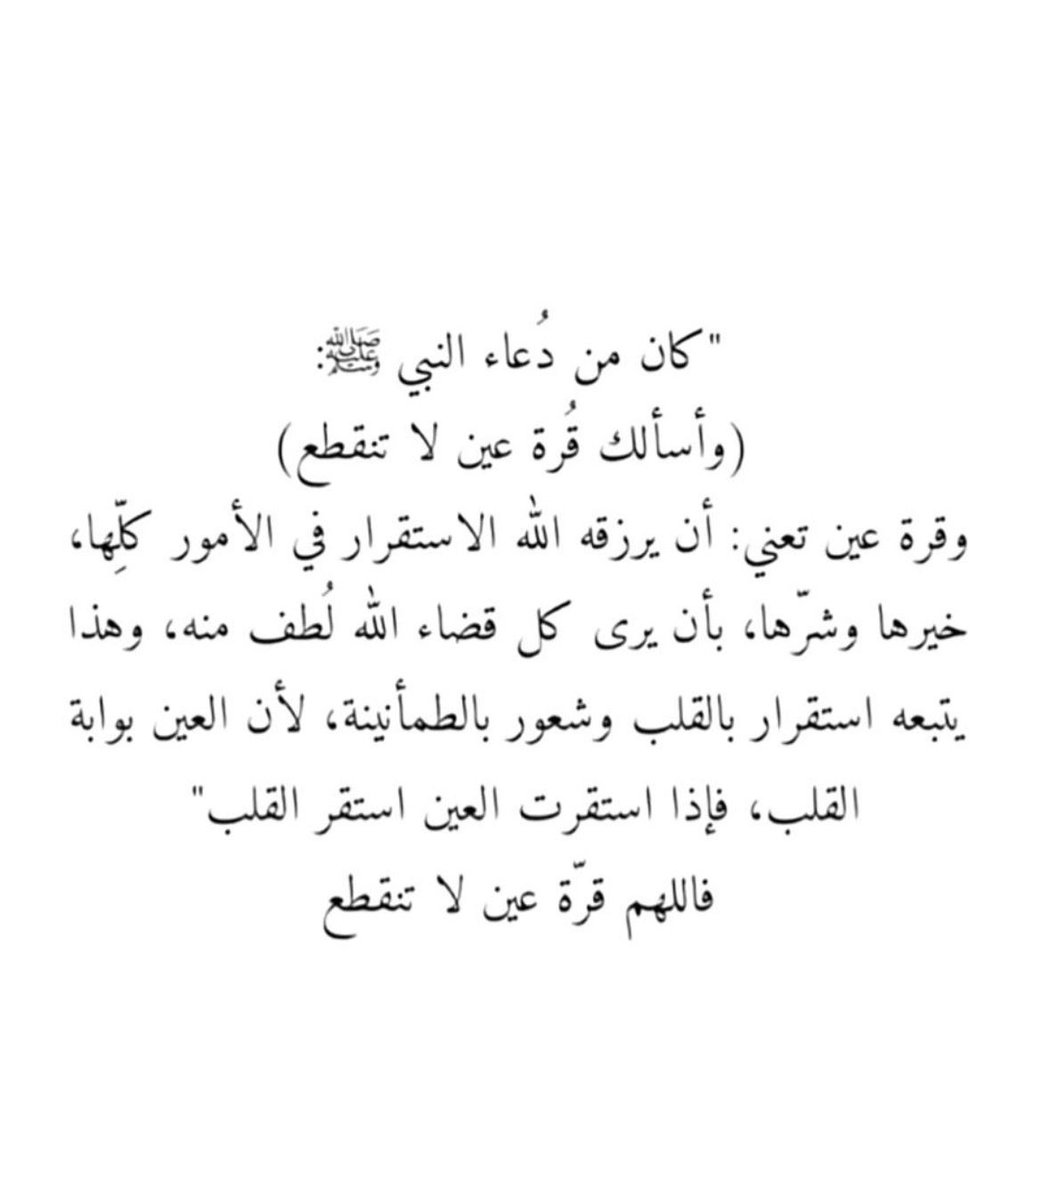 "كان من دُعاء النبي ﷺ:
(وأسألك قُرة عين لا تنقطع)
وقرة عين تعني: أن يرزقه الله الاستقرار في الأمور كلِّها،
خيرها وشرّها، بأن يرى كل قضاء الله لُطف منه، وهذا
يتبعه استقرار بالقلب وشعور بالطمأنينة، لأن العين بوابة
القلب، فإذا استقرت العين استقر القلب"
فاللهم قرّة عين لا تنقطع